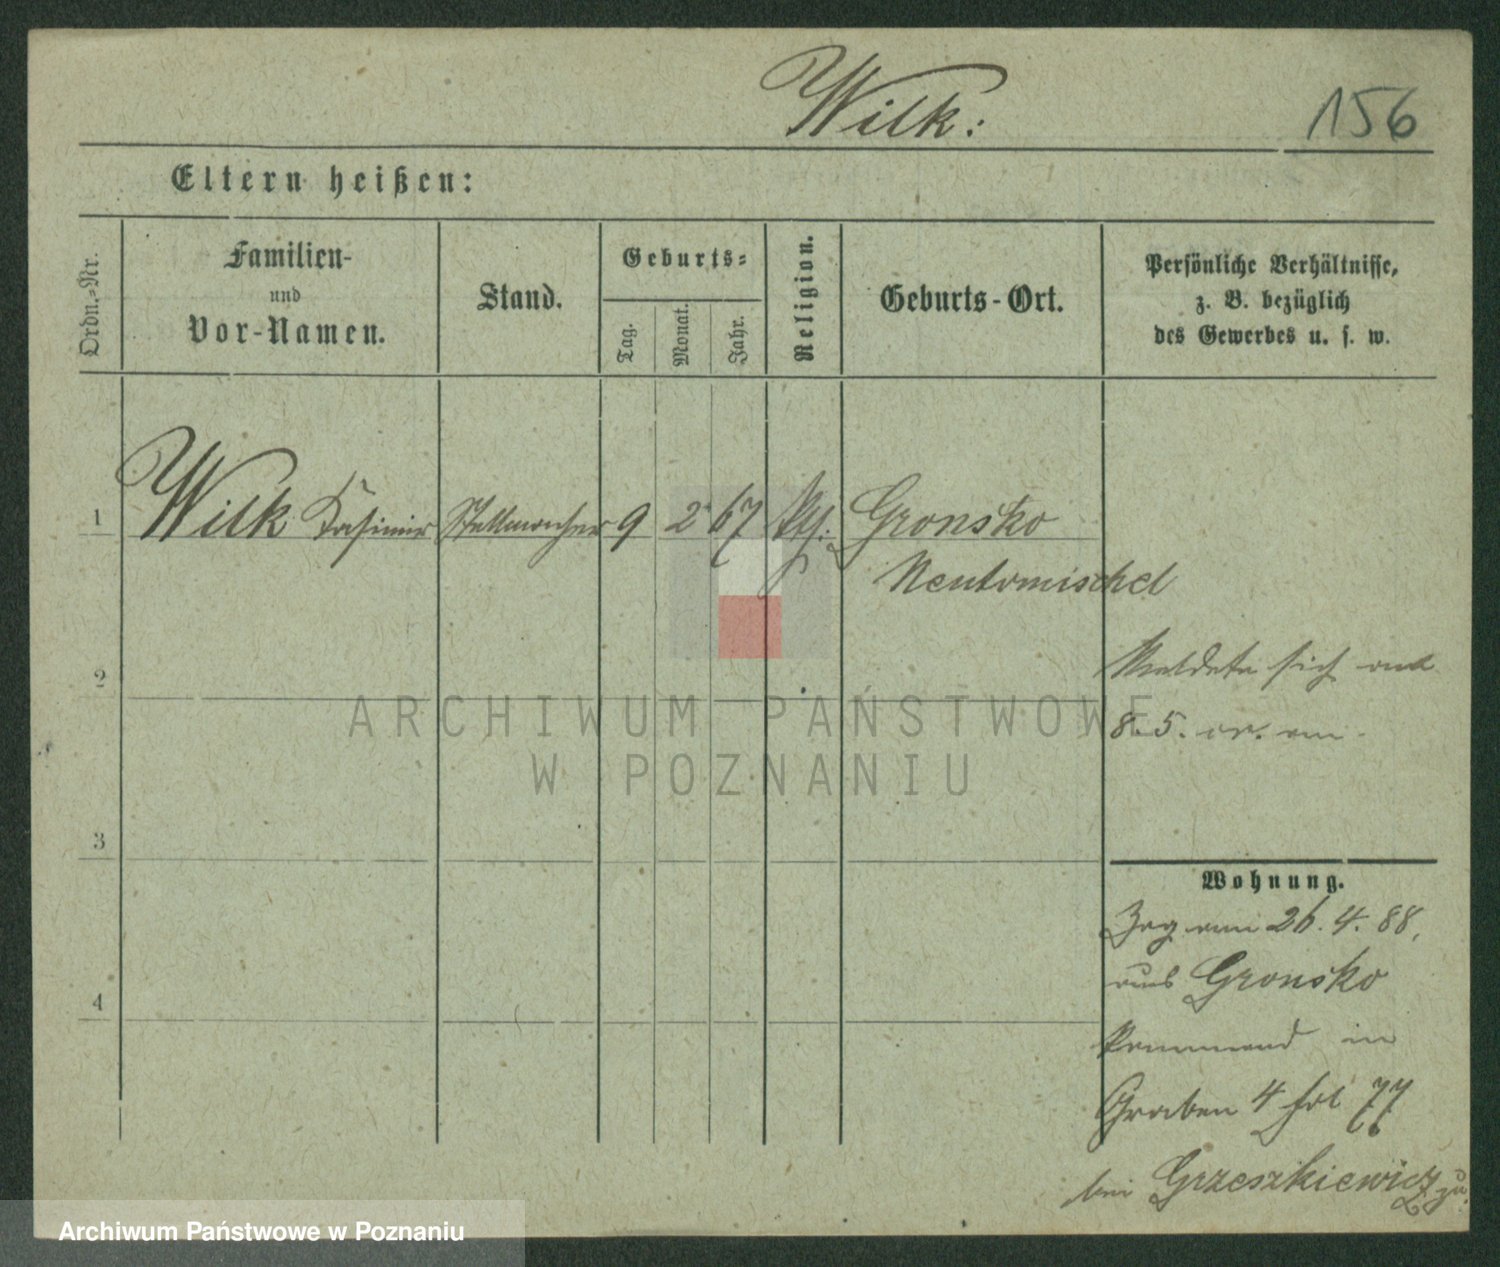 Wilk:
156
Eltern heißen:
Ordn.-Nr.
Familien-
und
Vor-Namen.
Stand.
Geburts-
Tag.
Monat.
Jahr.
Religion.
Geburts-Ort.
Persönliche Verhältnisse,
z. B. bezüglich
des Gewerbes u. s. w.
1
Wilk Kasimir Stellmacher 9 2 67 Gronsko
Neutomischel
2
Meldete sich
8. 5. cr. an.
3
Wohnung.
Zog am 26. 4. 88,
aus Gronsko
4
kommend in
Graben 4 fol 77
bei Grzeszkiewicz zu.
ARCHIWUM PAŃSTWOWE
W POZNANIU
Archiwum Państwowe w Poznaniu